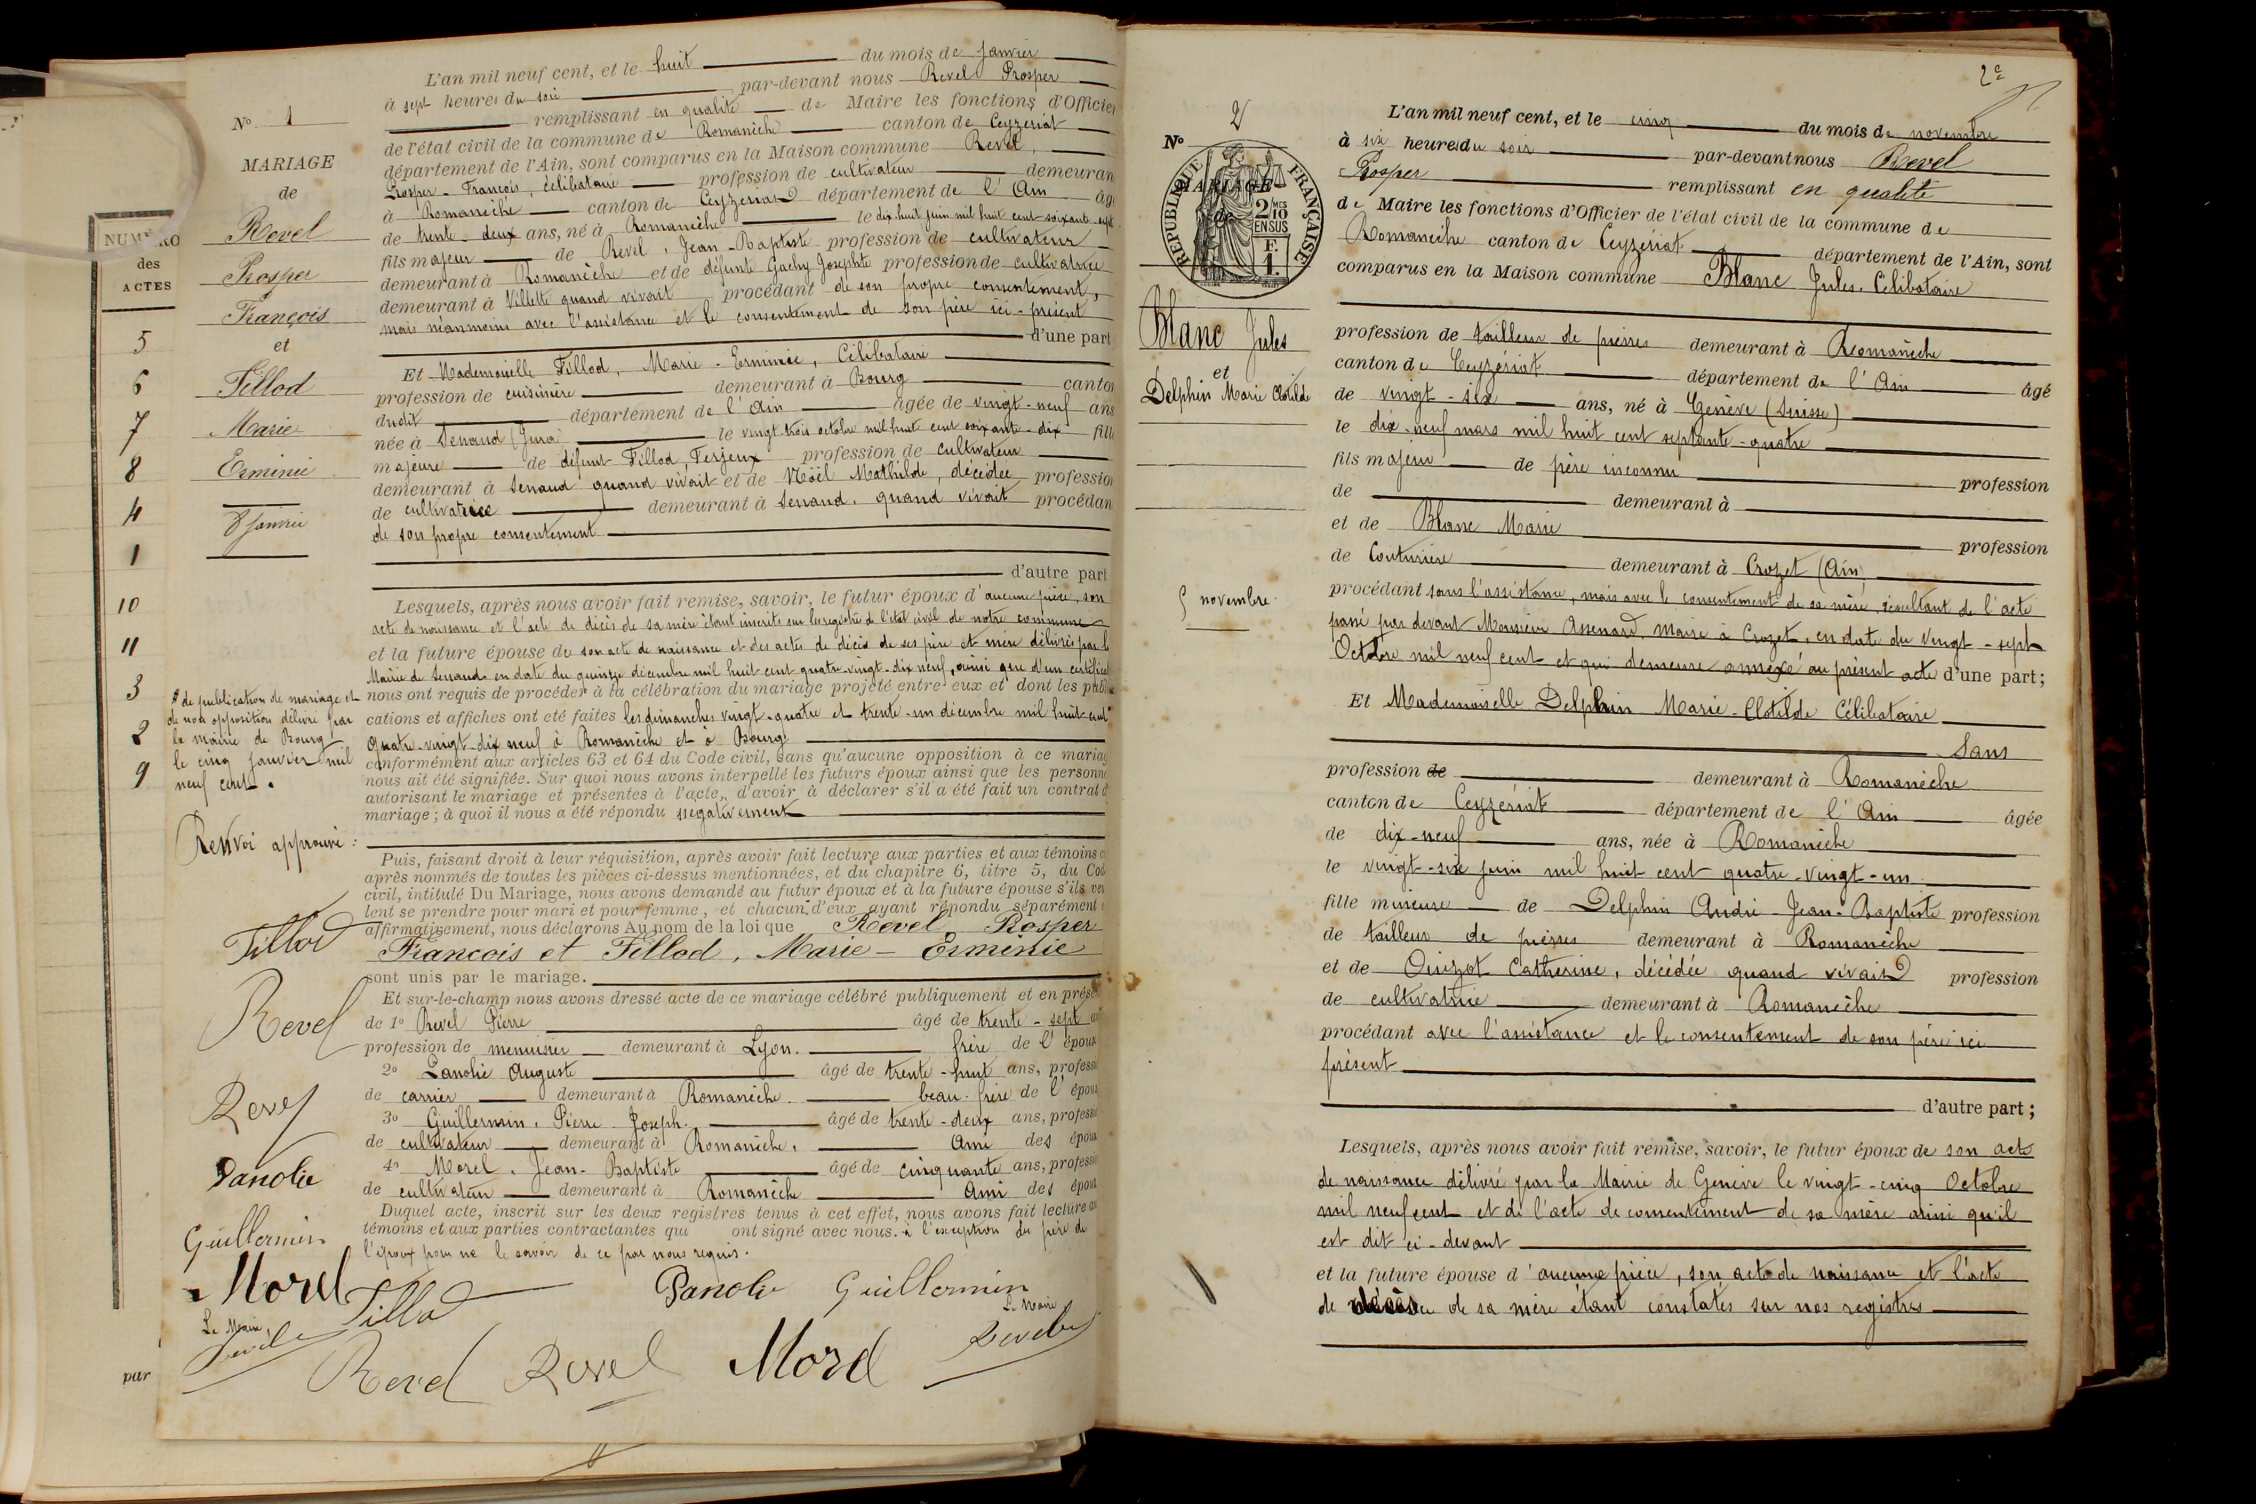 NUMÉRO
des
ACTES
5
6
7
8
4
1
10
11
3
2
9
par
N° 1
MARIAGE
de
Revel
Prosper
François
et
Fillod
Marie
Erminie
8 janvier
L'an mil neuf cent, et le huit du mois de Janvier
à sept heures du soir par-devant nous Revel Prosper
remplissant en qualité de Maire les fonctions d'Officier
de l'état civil de la commune de Romanèche canton de Ceyzeriat
département de l'Ain, sont comparus en la Maison commune Revel,
Prosper-François, célibataire profession de cultivateur demeuran
à Romanèche canton de Ceyzeriat département de l'Ain âg
de trente-deux ans, né à Romanèche le dix huit juin mil huit cent soixante-sept
fils majeur de Revel, Jean-Baptiste profession de cultivateur
demeurant à Romanèche et de défunte Gachy Josephte profession de cultivatrice
demeurant à Villette quand vivait procédant de son propre consentement,
mais néanmoins avec l'assistance et le consentement de son père ici-présent
d'une part
Et Mademoiselle Fillod, Marie-Erminie, Célibataire
profession de cuisinière demeurant à Bourg canton
dudit département de l'Ain âgée de vingt-neuf ans
née à Senaud (Jura) le vingt-trois octobre mil huit cent soixante-dix fill
majeure de défunt Fillod, Ferjeux profession de cultivateur
demeurant à Senaud quand vivait et de Noël Mathilde, décédée profession
de cultivatrice demeurant à Senaud, quand vivait procédan
de son propre consentement
d'autre part
Lesquels, après nous avoir fait remise, savoir, le futur époux d'aucune pièce, son
acte de naissance et l'acte de décès de sa mère étant inscrits sur les registres de l'état civil de notre commune
et la future épouse de son acte de naissance et des actes de décès de ses père et mère délivrés par la
Mairie de Senaud en date du quinze décembre mil huit cent quatre-vingt-dix neuf, ainsi que d'un certificat
nous ont requis de procéder à la célébration du mariage projeté entre eux et dont les publi
cations et affiches ont été faites les dimanches vingt-quatre et trente-un décembre mil huit cent
quatre-vingt-dix neuf à Romanèche et à Bourg
conformément aux articles 63 et 64 du Code civil, sans qu'aucune opposition à ce mariag
nous ait été signifiée. Sur quoi nous avons interpellé les futurs époux ainsi que les personne
autorisant le mariage et présentes à l'acte, d'avoir à déclarer s'il a été fait un contrat d
mariage; à quoi il nous a été répondu négativement
de publication de mariage et
de non opposition délivré par
la mairie de Bourg
le cinq janvier mil
neuf cent.
Renvoi approuvé:
Puis, faisant droit à leur réquisition, après avoir fait lecture aux parties et aux témoins c
après nommés de toutes les pièces ci-dessus mentionnées, et du chapitre 6, titre 5, du Cod
civil, intitulé Du Mariage, nous avons demandé au futur époux et à la future épouse s'ils veu
lent se prendre pour mari et pour femme, et chacun d'eux ayant répondu séparément
affirmativement, nous déclarons Au nom de la loi que Revel Prosper
François et Fillod, Marie-Erminie
sont unis par le mariage.
Et sur-le-champ nous avons dressé acte de ce mariage célébré publiquement et en prése
de 1° Revel Pierre âgé de trente-sept an
profession de menuisier demeurant à Lyon. frère de l'époux
2° Panolie Auguste âgé de trente-huit ans, professi
de carrier demeurant à Romanèche. beau-frère de l'époux
3° Guillermin, Pierre Joseph. âgé de trente-deux ans, professi
de cultivateur demeurant à Romanèche, Ami des époux
4° Morel, Jean-Baptiste âgé de cinquante ans, professi
de cultivateur demeurant à Romanèche Ami des époux
Duquel acte, inscrit sur les deux registres tenus à cet effet, nous avons fait lecture au
témoins et aux parties contractantes qui ont signé avec nous. à l'exception du père de
l'époux pour ne le savoir de ce par nous requis.
Fillod
Revel
Revel
Panolie
Guillermin
Morel
Fillod
Panolie Guillermin
Le Maire,
Le Maire
Revel Revel Morel Revel
2e
N° 2
RÉPUBLIQUE FRANÇAISE
2 MES
10
EN SUS
F.
1.
MARIAGE
de
Blanc Jules
et
Delphin Marie Clotilde
5 novembre
L'an mil neuf cent, et le cinq du mois de novembre
à six heures du soir par-devant nous Revel
Prosper remplissant en qualité
de Maire les fonctions d'Officier de l'état civil de la commune de
Romanèche canton de Ceyzeriat département de l'Ain, sont
comparus en la Maison commune Blanc Jules, Célibataire
profession de tailleur de pierres demeurant à Romanèche
canton de Ceyzériat département de l'Ain âgé
de vingt-six ans, né à Genève (Suisse)
le dix-neuf mars mil huit cent septante-quatre
fils majeur de père inconnu profession
de demeurant à
et de Blanc Marie profession
de Couturière demeurant à Crozet (Ain)
procédant sans l'assistance, mais avec le consentement de sa mère, résultant de l'acte
passé par devant Monsieur Assenard, Maire à Crozet, en date du vingt-sept
Octobre mil neuf cent et qui demeure annexé au présent acte d'une part;
Et Mademoiselle Delphin Marie-Clotilde Célibataire
Sans
profession de demeurant à Romanèche
canton de Ceyzériat département de l'Ain âgée
de dix-neuf ans, née à Romanèche
le vingt-six juin mil huit cent quatre-vingt-un
fille mineure de Delphin André-Jean-Baptiste profession
de tailleur de pierres demeurant à Romanèche
et de Ouizot Catherine, décédée quand vivait profession
de cultivatrice demeurant à Romanèche
procédant avec l'assistance et le consentement de son père ici
présent
d'autre part;
Lesquels, après nous avoir fait remise, savoir, le futur époux de son acte
de naissance délivré par la Mairie de Genève le vingt-cinq Octobre
mil neuf cent et de l'acte de consentement de sa mère ainsi qu'il
est dit ci-devant
et la future épouse d'aucune pièce, son acte de naissance et l'acte
de décès de sa mère étant constatés sur nos registres